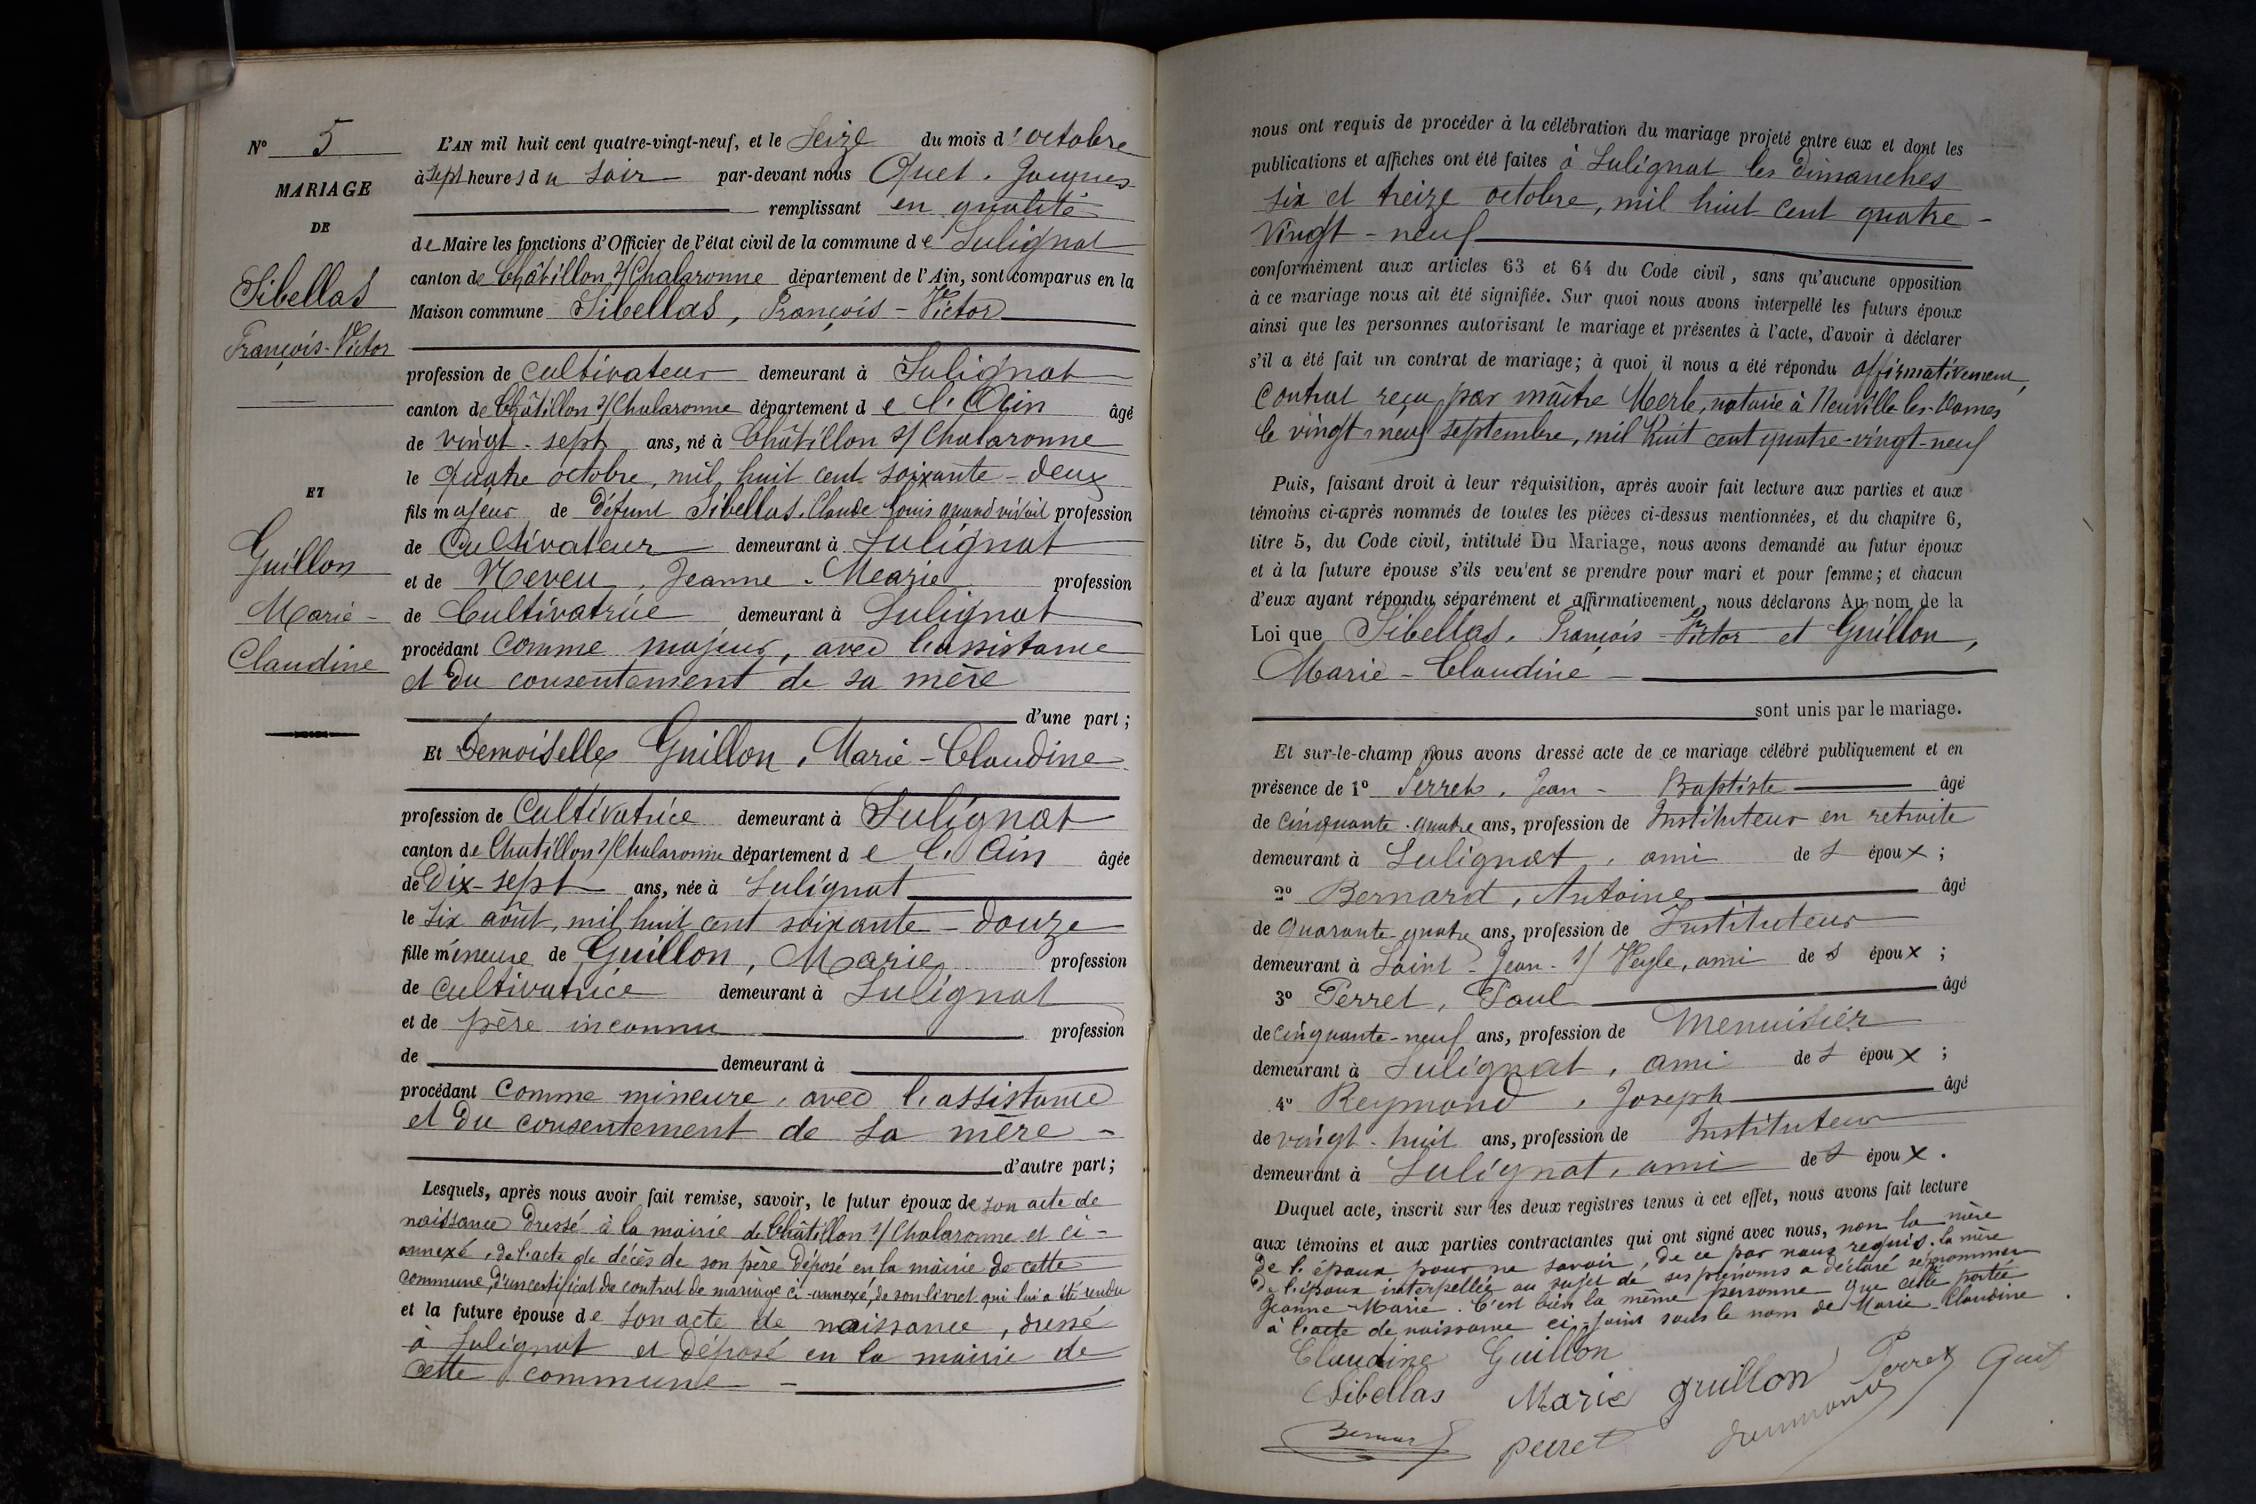 N° 5
MARIAGE
DE
Sibellas
François-Victor
ET
Guillon
Marie-
Claudine
L'AN mil huit cent quatre-vingt-neuf, et le Seize du mois d'octobre
à sept heures du soir par-devant nous Quet, Jacques
remplissant en qualité
de Maire les fonctions d'Officier de l'état civil de la commune de Sulignat
canton de Châtillon s/Chalaronne département de l'Ain, sont comparus en la
Maison commune Sibellas, François-Victor
profession de cultivateur demeurant à Sulignat
canton de Châtillon s/Chalaronne département de l'Ain âgé
de vingt-sept ans, né à Châtillon s/Chalaronne
le quatre octobre, mil huit cent soixante-deux
fils majeur de défunt Sibellas, Claude Louis quand vivait profession
de Cultivateur demeurant à Sulignat
et de Neveu, Jeanne-Marie profession
de Cultivatrice demeurant à Sulignat
procédant comme majeur, avec l'assistance
et du consentement de sa mère
d'une part;
Et Demoiselle Guillon, Marie-Claudine
profession de Cultivatrice demeurant à Sulignat
canton de Chatillon s/Chalaronne département de l'Ain âgée
de Dix-sept ans, née à Sulignat
le six août, mil huit cent soixante-douze
fille mineure de Guillon, Marie profession
de cultivatrice demeurant à Sulignat
et de père inconnu profession
de demeurant à
procédant comme mineure, avec l'assistance
et du consentement de sa mère -
d'autre part;
Lesquels, après nous avoir fait remise, savoir, le futur époux de son acte de
naissance dressé à la mairie de Châtillon s/Chalaronne et ci-
annexé, de l'acte de décès de son père déposé en la mairie de cette
commune, d'un certificat de contrat de mariage ci-annexé, de son livret qui lui a été rendu
et la future épouse de son acte de naissance, dressé
à Sulignat et déposé en la mairie de
cette commune -
nous ont requis de procéder à la célébration du mariage projeté entre eux et dont les
publications et affiches ont été faites à Sulignat les dimanches
six et treize octobre, mil huit cent quatre-
vingt-neuf
conformément aux articles 63 et 64 du Code civil, sans qu'aucune opposition
à ce mariage nous ait été signifiée. Sur quoi nous avons interpellé les futurs époux
ainsi que les personnes autorisant le mariage et présentes à l'acte, d'avoir à déclarer
s'il a été fait un contrat de mariage; à quoi il nous a été répondu affirmativement,
contrat reçu par maître Merle, notaire à Neuville-les-Dames
le vingt-neuf septembre, mil huit cent quatre-vingt-neuf
Puis, faisant droit à leur réquisition, après avoir fait lecture aux parties et aux
témoins ci-après nommés de toutes les pièces ci-dessus mentionnées, et du chapitre 6,
titre 5, du Code civil, intitulé Du Mariage, nous avons demandé au futur époux
et à la future épouse s'ils veulent se prendre pour mari et pour femme; et chacun
d'eux ayant répondu séparément et affirmativement, nous déclarons Au nom de la
Loi que Sibellas, François-Victor et Guillon,
Marie-Claudine -
sont unis par le mariage.
Et sur-le-champ nous avons dressé acte de ce mariage célébré publiquement et en
présence de 1° Perret, Jean-Baptiste âgé
de cinquante-quatre ans, profession de Instituteur en retraite
demeurant à Sulignat, ami des époux;
2° Bernard, Antoine âgé
de quarante-quatre ans, profession de Instituteur
demeurant à Saint-Jean-s/Veyle, ami des époux;
3° Perret, Paul âgé
de cinquante-neuf ans, profession de Menuisier
demeurant à Sulignat, ami des époux;
4° Reymond, Joseph âgé
de vingt-huit ans, profession de Instituteur
demeurant à Sulignat, ami des époux.
Duquel acte, inscrit sur les deux registres tenus à cet effet, nous avons fait lecture
aux témoins et aux parties contractantes qui ont signé avec nous, non la mère
de l'époux pour ne savoir, de ce par nous requis. la mère
de l'époux interpellée au sujet de ses prénoms a déclaré se nommer
Jeanne-Marie. C'est bien la même personne que celle portée
à l'acte de naissance ci-joint sous le nom de Marie-Claudine
Claudine Guillon
Sibellas Marie guillon Perret Quet
Bernard perret